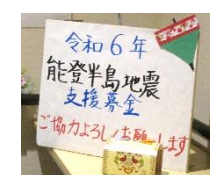 令和6年
能登半島地震
支援募金
ご協力よろしくお願いします